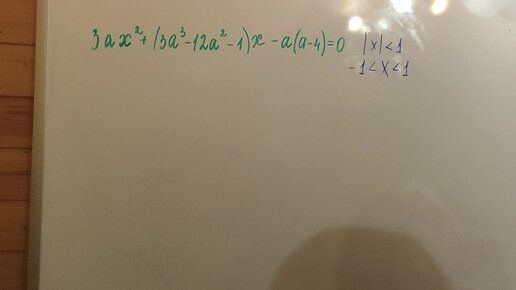 3ax² + (3a³-12a²-1)x - a(a-4)=0 |x|<1
-1<x<1